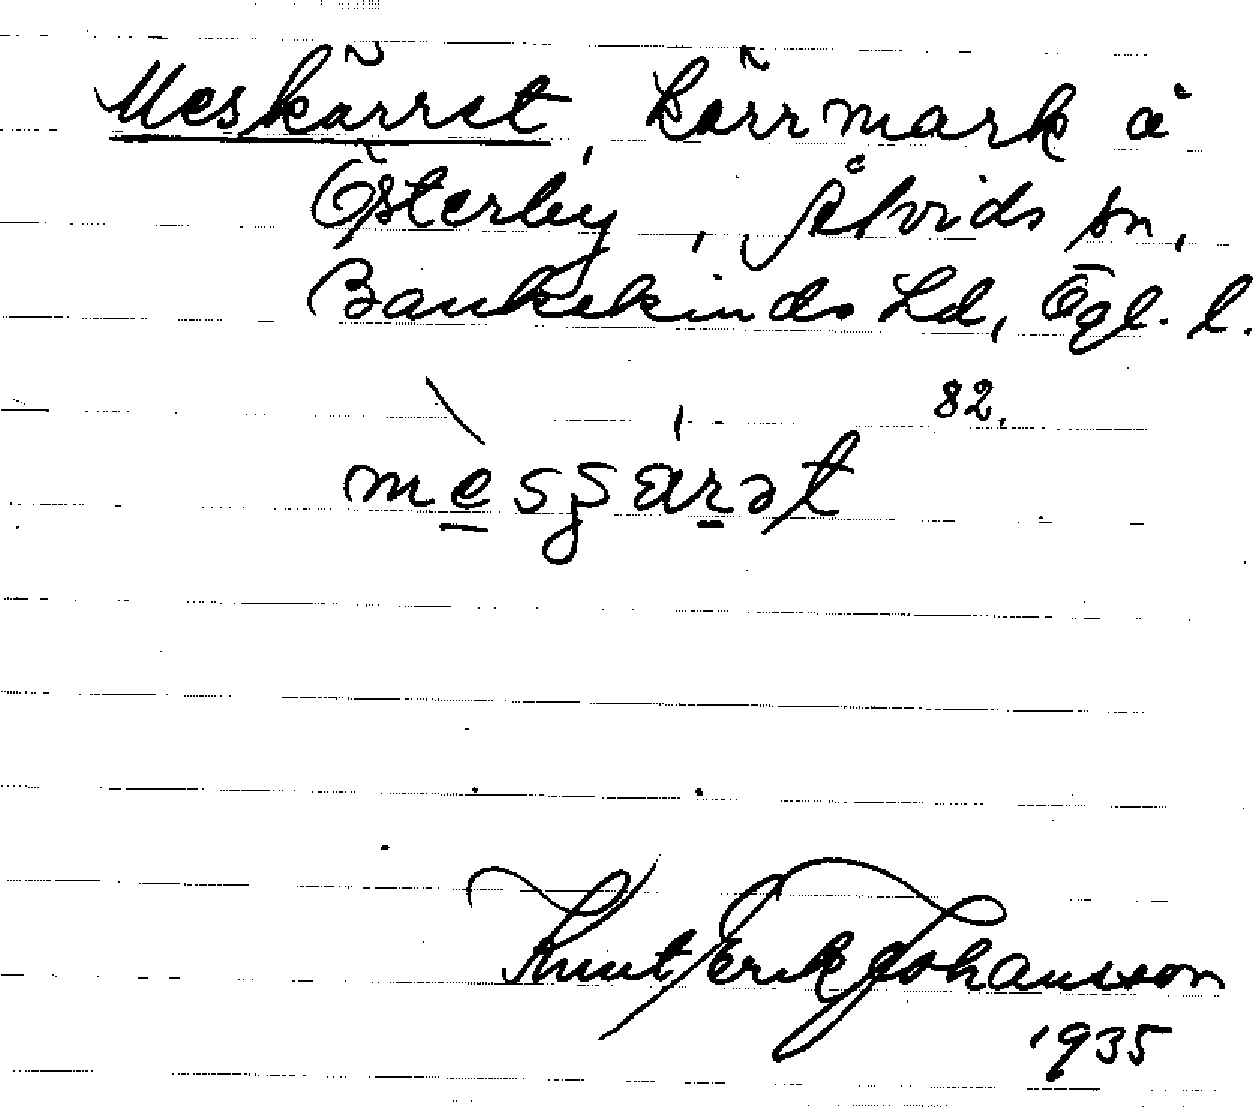 Meskärret, kärrmark å
Österby, Åtvids sn,
Bankekinds hd, Ögl. l.
82.
Knut Erik Johansson
1935